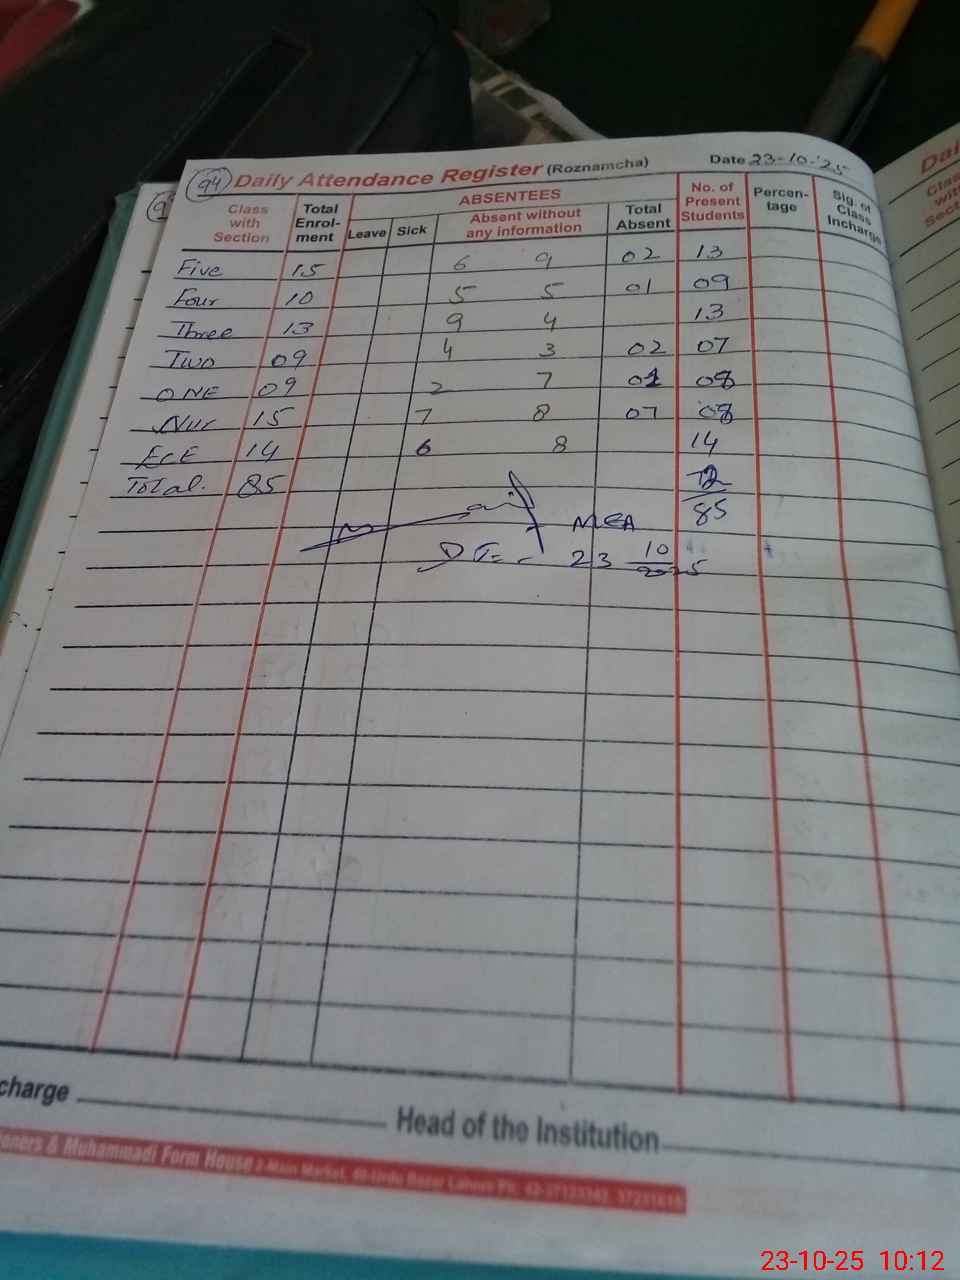 94 Daily Attendance Register (Roznamcha) Date 23-10-'25
Class with Section Total Enrol-ment ABSENTEES Leave Sick Absent without any information Total Absent No. of Present Students Percen-tage Sig. of Class Incharge
Five 15 6 9 02 13
Four 10 5 5 01 09
Three 13 9 4 13
Two 09 4 3 02 07
ONE 09 2 7 01 08
Nur 15 7 8 07 08
ECE 14 6 8 14
Total. 85 72
85
MEA
23 10
2025
charge Head of the Institution
oners & Muhammadi Form House 2-Main Market, 40-Urdu Bazar Lahore Ph:
23-10-25 10:12